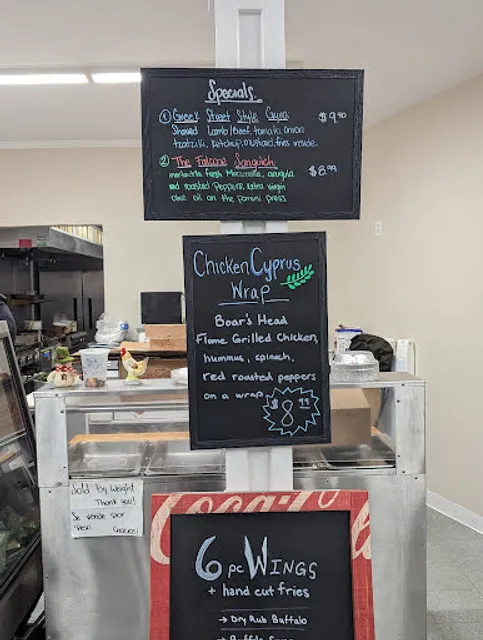 Specials
① Greek Street Style Gyro: $9.50
Shaved Lamb/Beef, tomato, onion
tzatziki, ketchup, mustard, fries inside.
② The Falcone Sangwich $8.99
mortadella, fresh Mozzarella, arugula
red roasted Peppers, extra virgin
olive oil on the panini press
Chicken Cyprus
Wrap
Boar's Head
Flame Grilled Chicken,
hummus, spinach,
red roasted peppers
on a wrap $8.99
Sold by Weight
Thank you!
Se vende por
Peso. Gracias!
Coca-Cola
6 pc WINGS
+ hand cut fries
→ Dry Rub Buffalo
→ Buffalo Sauce